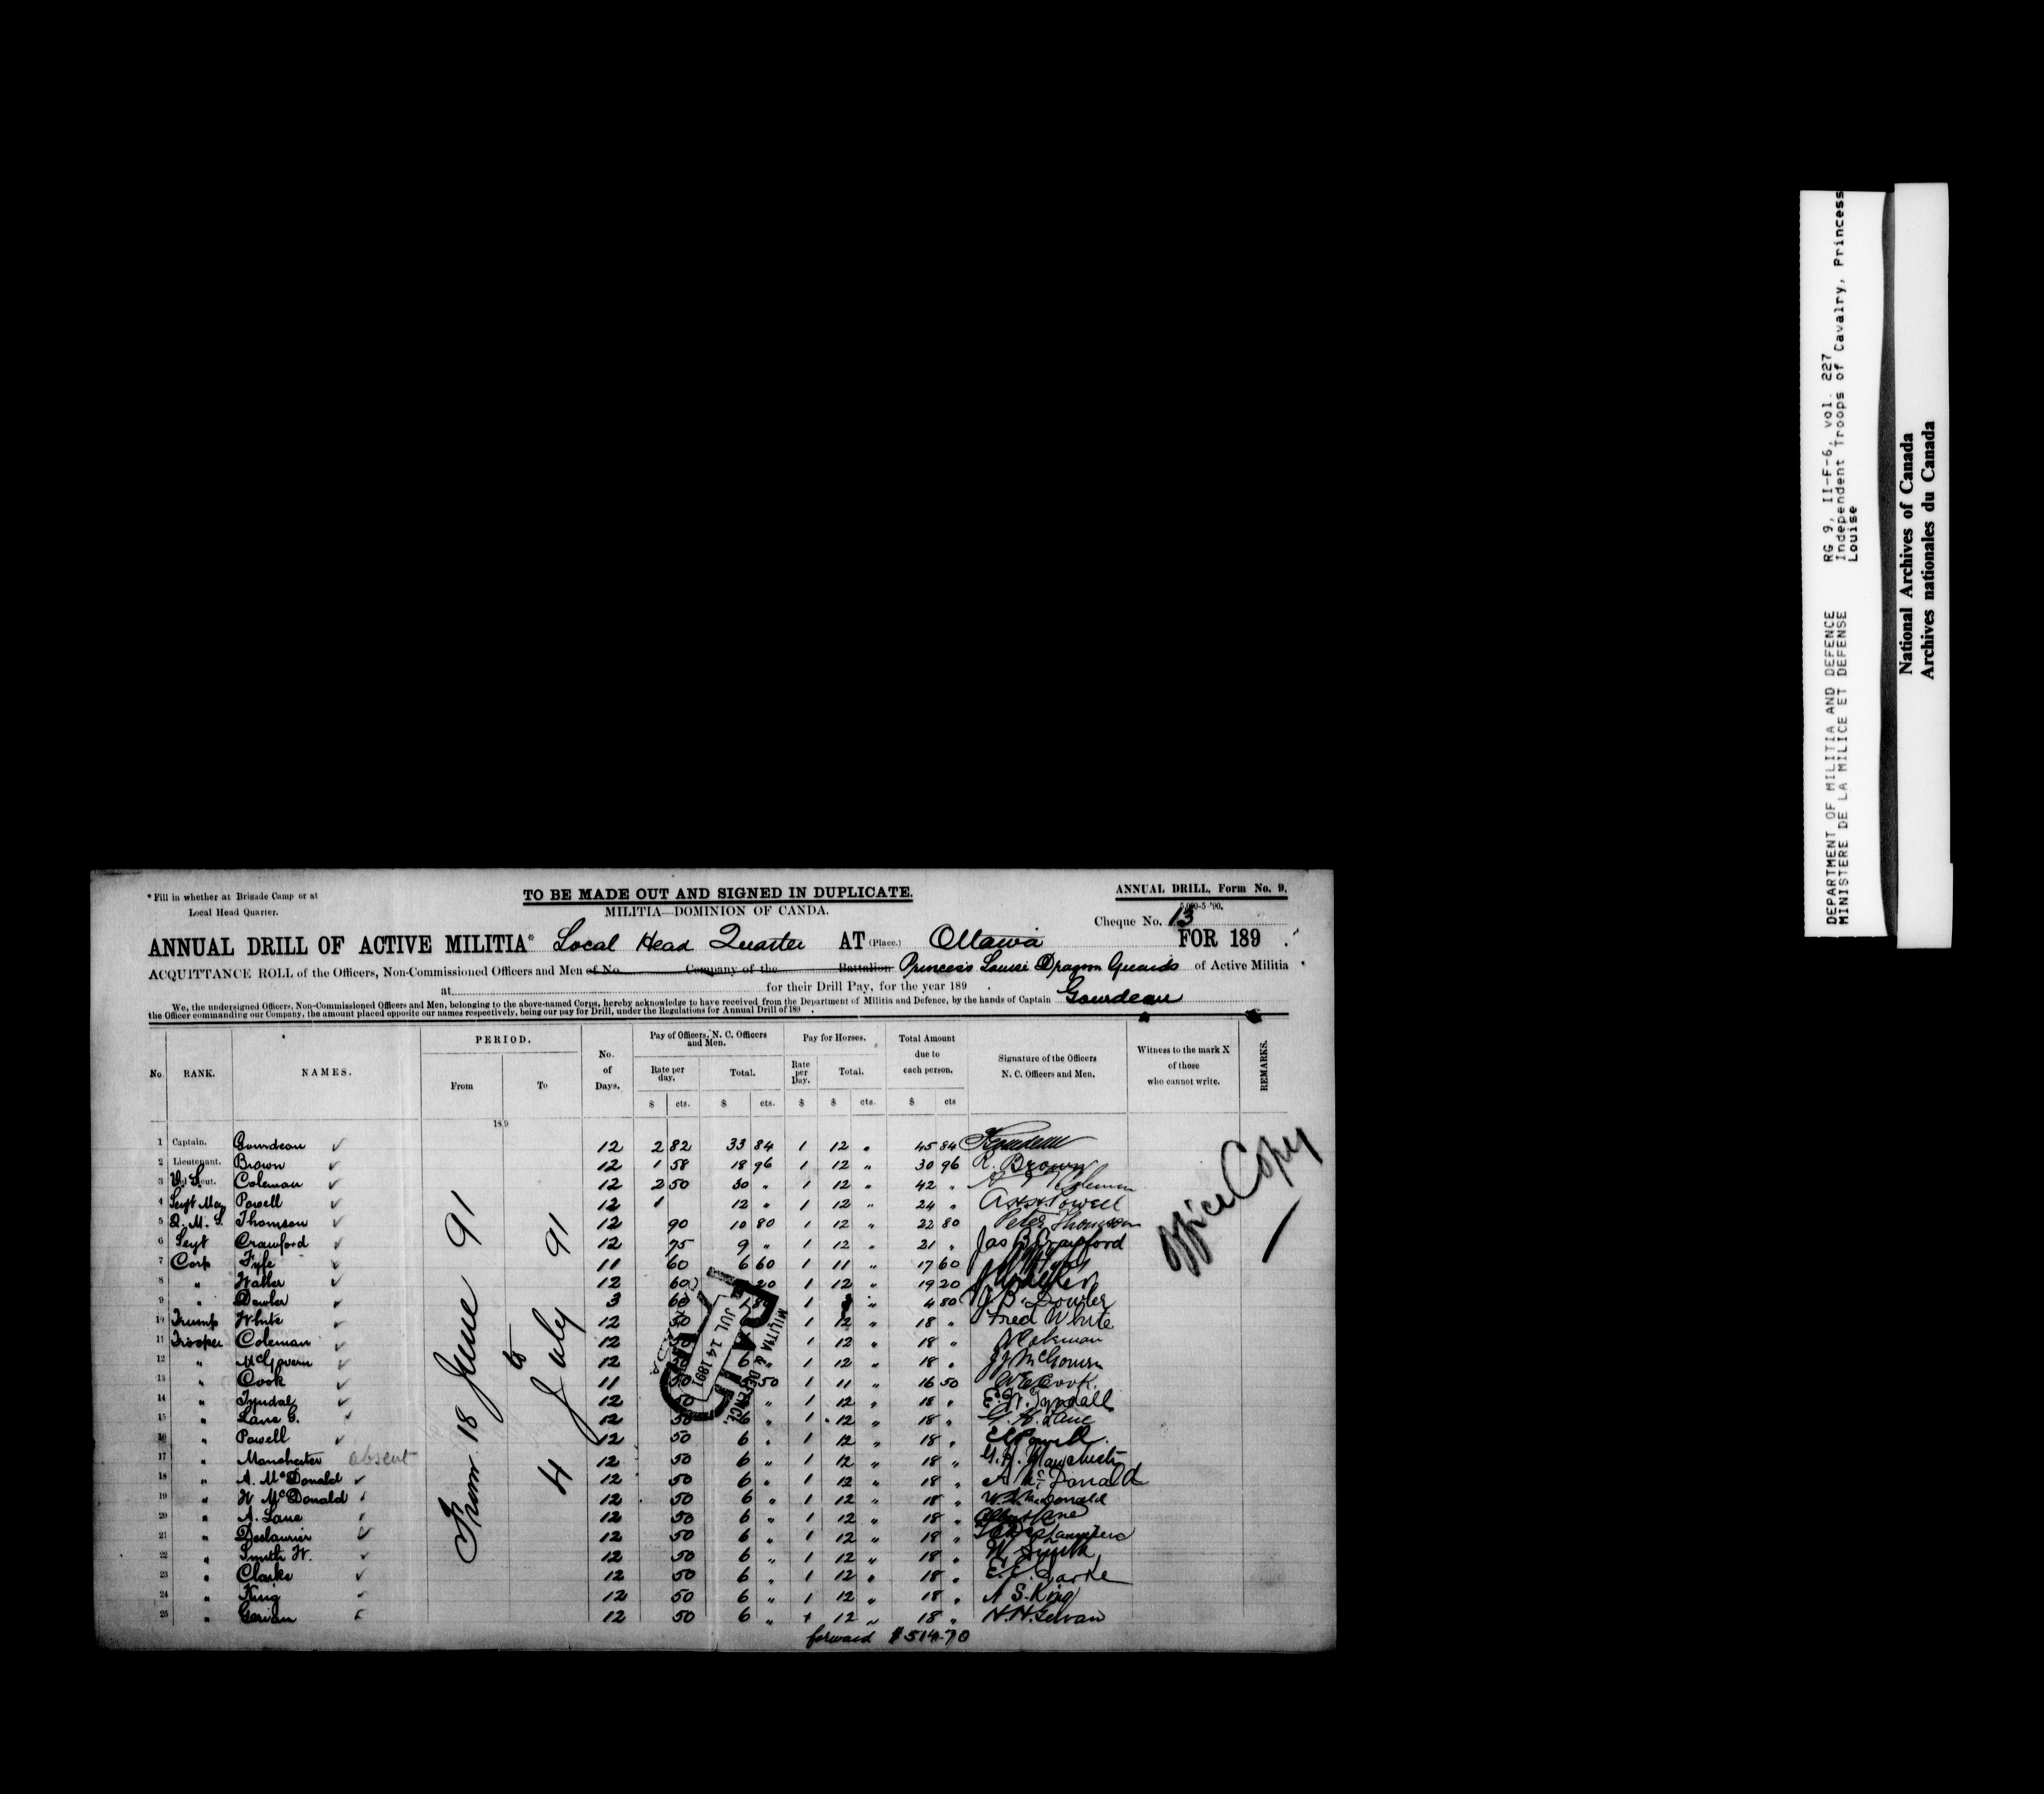 * Fill in whether at Brigade Camp or at
Local Head Quarter.
TO BE MADE OUT AND SIGNED IN DUPLICATE.
MILITIA—DOMINION OF CANDA.
ANNUAL DRILL, Form No. 9.
5,000-5-'90.
Cheque No. 13
ANNUAL DRILL OF ACTIVE MILITIA* Local Head Quarter AT (Place.) Ottawa FOR 189 .
ACQUITTANCE ROLL of the Officers, Non-Commissioned Officers and Men of No. Company of the Battalion Princess Louise Dragoon Guards of Active Militia
at for their Drill Pay, for the year 189 .
We, the undersigned Officers, Non-Commissioned Officers and Men, belonging to the above-named Corps, hereby acknowledge to have received from the Department of Militia and Defence, by the hands of Captain Gourdeau
the Officer commanding our Company, the amount placed opposite our names respectively, being our pay for Drill, under the Regulations for Annual Drill of 189 .
No. RANK. NAMES. PERIOD. From To No. of Days. Pay of Officers, N. C. Officers and Men. Rate per day. Total. Pay for Horses. Rate per Day. Total. Total Amount due to each person. Signature of the Officers N. C. Officers and Men. Witness to the mark X of those who cannot write. REMARKS.
$ cts. $ cts. $ $ cts. $ cts
189
From 18 June 91 to 4 July 91
1 Captain. Gourdeau ✓ 12 2 82 33 84 1 12 " 45 84
2 Lieutenant. Brown ✓ 12 1 58 18 96 1 12 " 30 96 R. Brown
3 Coleman ✓ 12 2 50 30 " 1 12 " 42 " Coleman
4 Sergt Maj Powell ✓ 12 1 12 " 1 12 " 24 " Powell
5 Q. M. S. Thomson ✓ 12 90 10 80 1 12 " 22 80 Peter Thomson
6 Sergt Crawford ✓ 12 75 9 " 1 12 " 21 " Jas B Crawford
7 Corp Fyfe ✓ 11 60 6 60 1 11 " 17 60
8 " Walker ✓ 12 60 20 1 12 " 19 20 Walker
9 " Dowler ✓ 3 60 1 80 1 " 4 80 Dowler
10 Trump White ✓ 12 50 1 12 " 18 " Fred White
11 Trooper Coleman ✓ 12 50 1 12 " 18 " Coleman
12 " McGovern ✓ 12 50 6 " 1 12 " 18 " McGovern
13 " Cook ✓ 11 50 50 1 11 " 16 50 Cook.
14 " Tyndall ✓ 12 50 " 1 12 " 18 " E. W. Tyndall
15 " Lane G. ✓ 12 50 6 " 1 12 " 18 " G. H. Lane
16 " Powell ✓ 12 50 6 " 1 12 " 18 " Powell.
17 " Manchester absent 12 50 6 " 1 12 " 18 " Manchester
18 " A. McDonald ✓ 12 50 6 " 1 12 " 18 " A McDonald
19 " W McDonald ✓ 12 50 6 " 1 12 " 18 " McDonald
20 " A. Lane ✓ 12 50 6 " 1 12 " 18 " Albert Lane
21 " Deslaurier ✓ 12 50 6 " 1 12 " 18 "
22 " Smith W. ✓ 12 50 6 " 1 12 " 18 " W Smith
23 " Clarke ✓ 12 50 6 " 1 12 " 18 " Clarke
24 " King ✓ 12 50 6 " 1 12 " 18 " S. King
25 " 12 50 6 " 1 12 " 18 "
forward $ 514.70
Office Copy
MILITIA & DEFENCE.
JUL 14 1891
DEPARTMENT OF MILITIA AND DEFENCE
MINISTERE DE LA MILICE ET DEFENSE
RG 9, II-F-6, vol. 227
Independent Troops of Cavalry, Princess
Louise
National Archives of Canada
Archives nationales du Canada